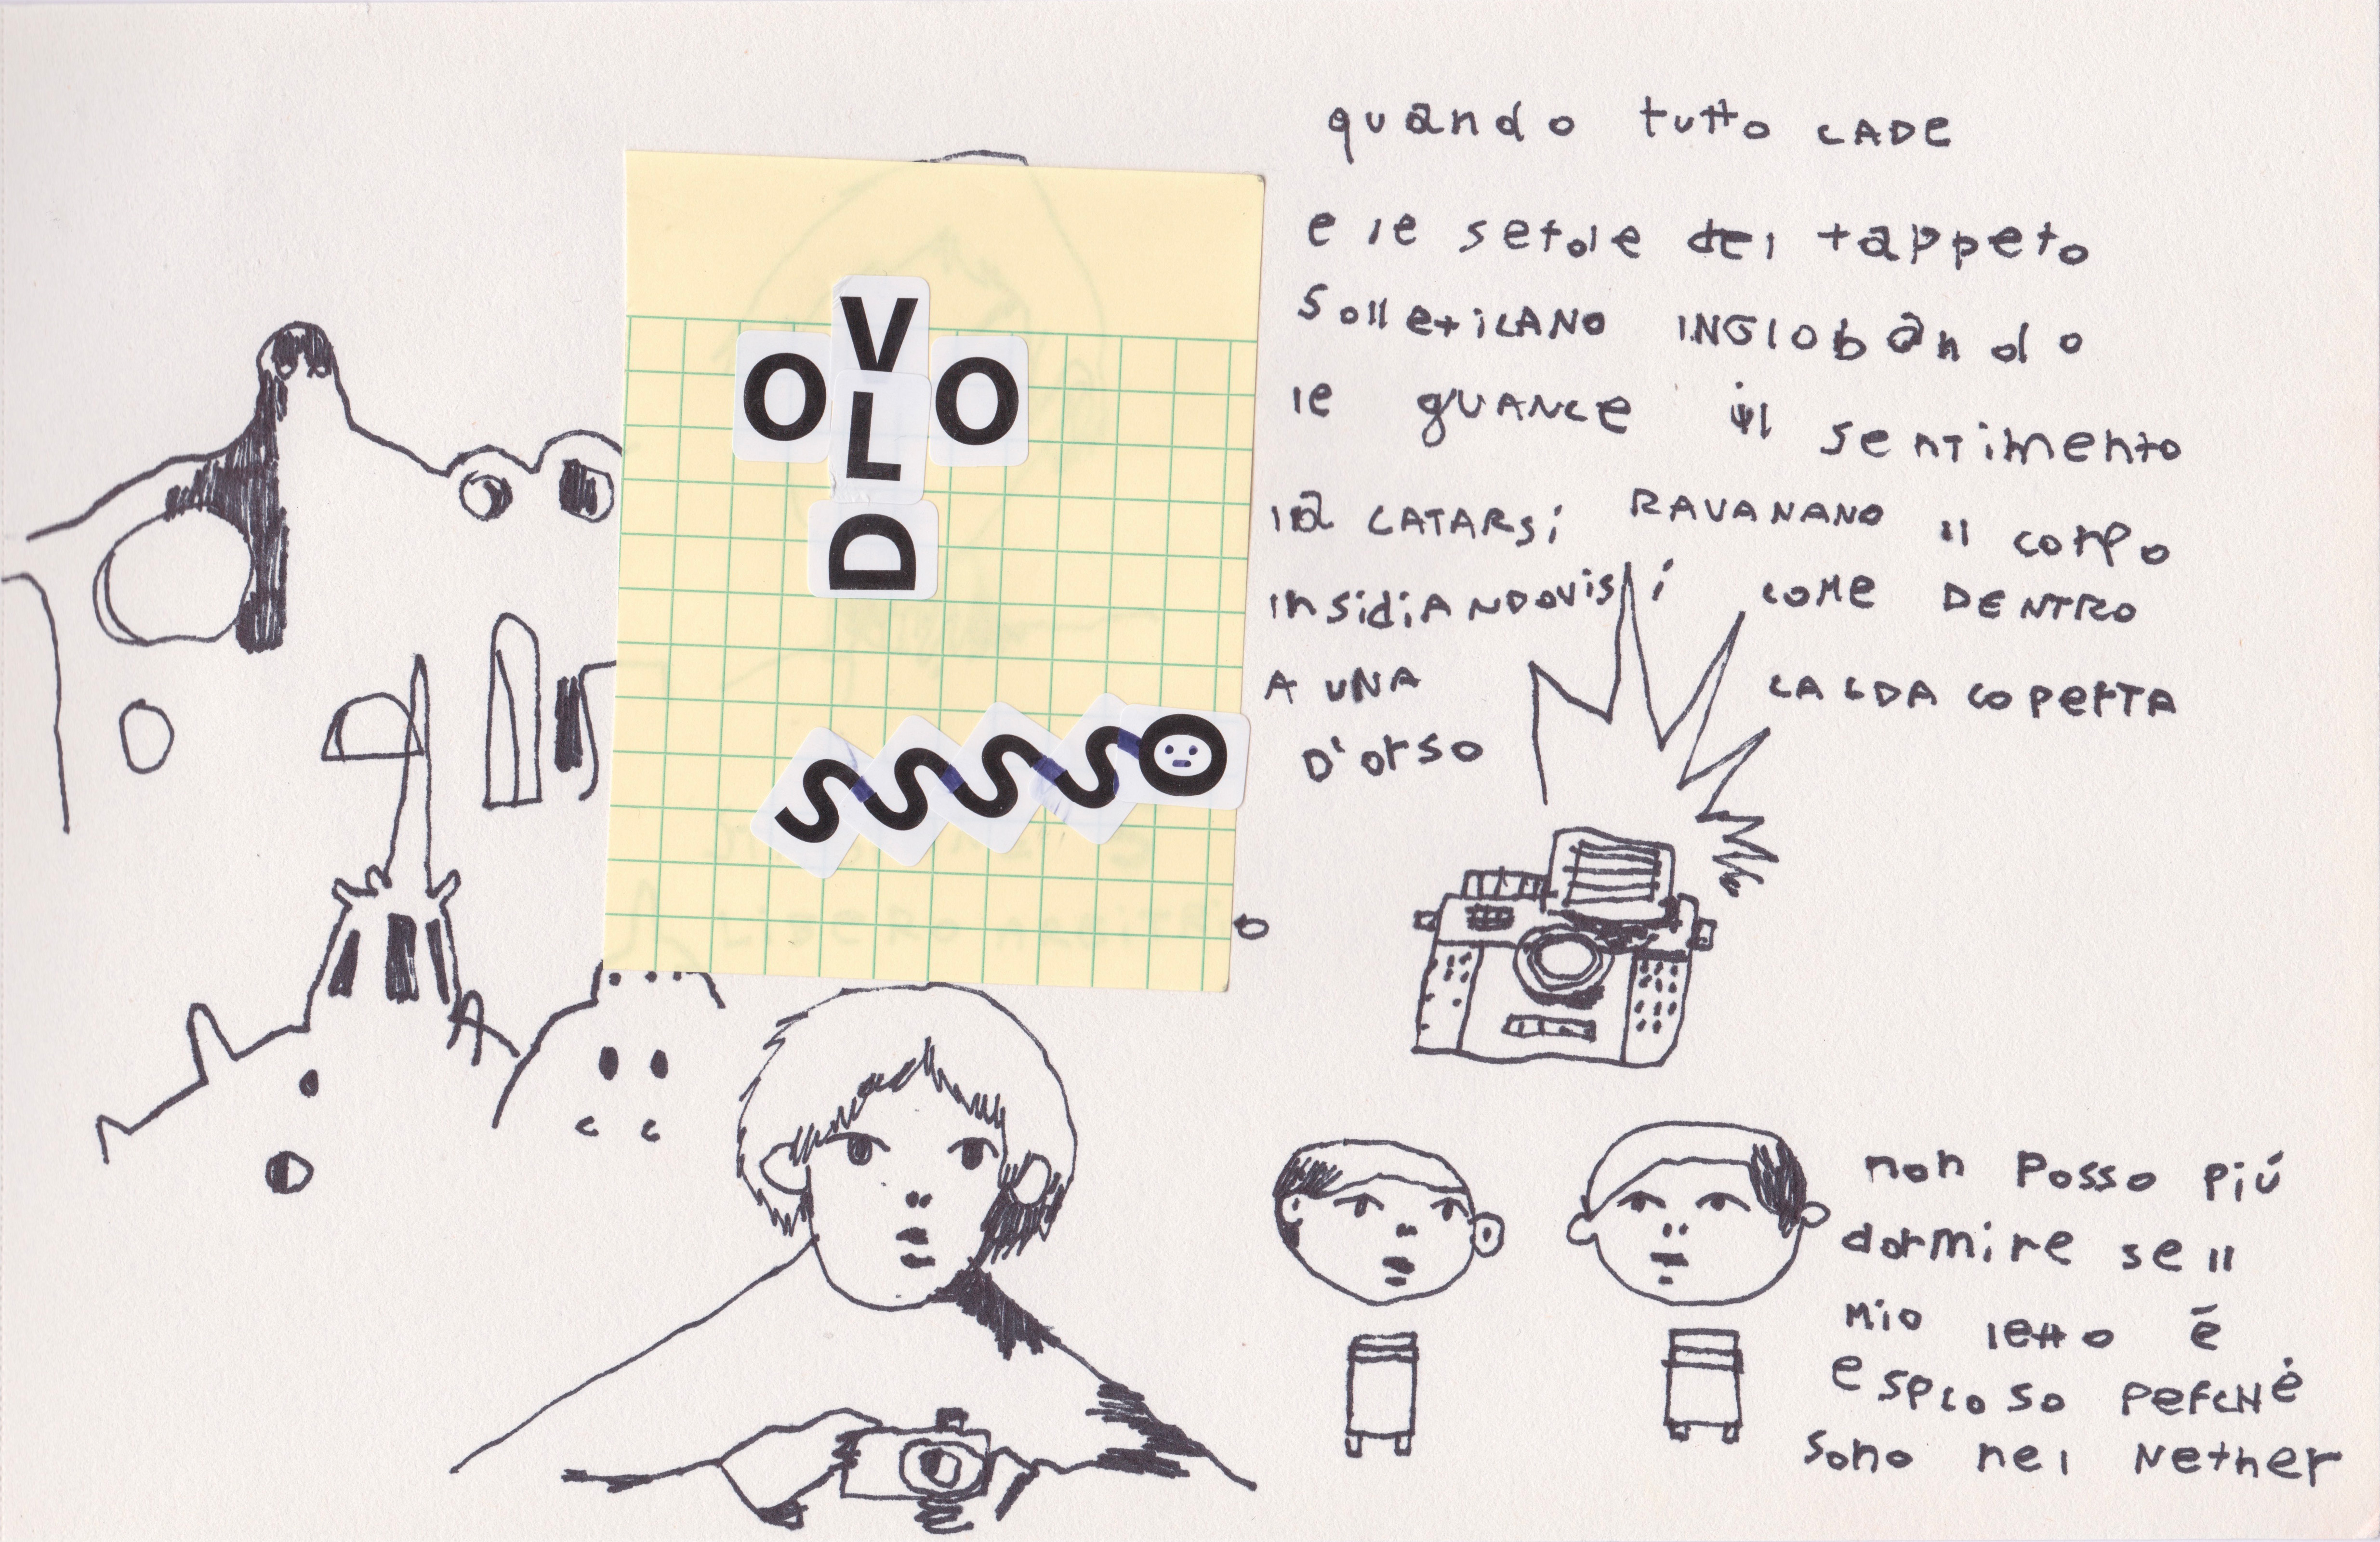 V
O L O
D
SSSSO
quando tutto CADE
e le setole del tappeto
SolleticANO INGlobando
le guANCE il sentimento
la CATARSi RAVANANO il corpo
insidiANDOvisi COME DENTRO
A UNA CALDA COPERTA
D'orso
non posso più
dormire se il
Mio letto ē
esploso perchė
sono nel Nether